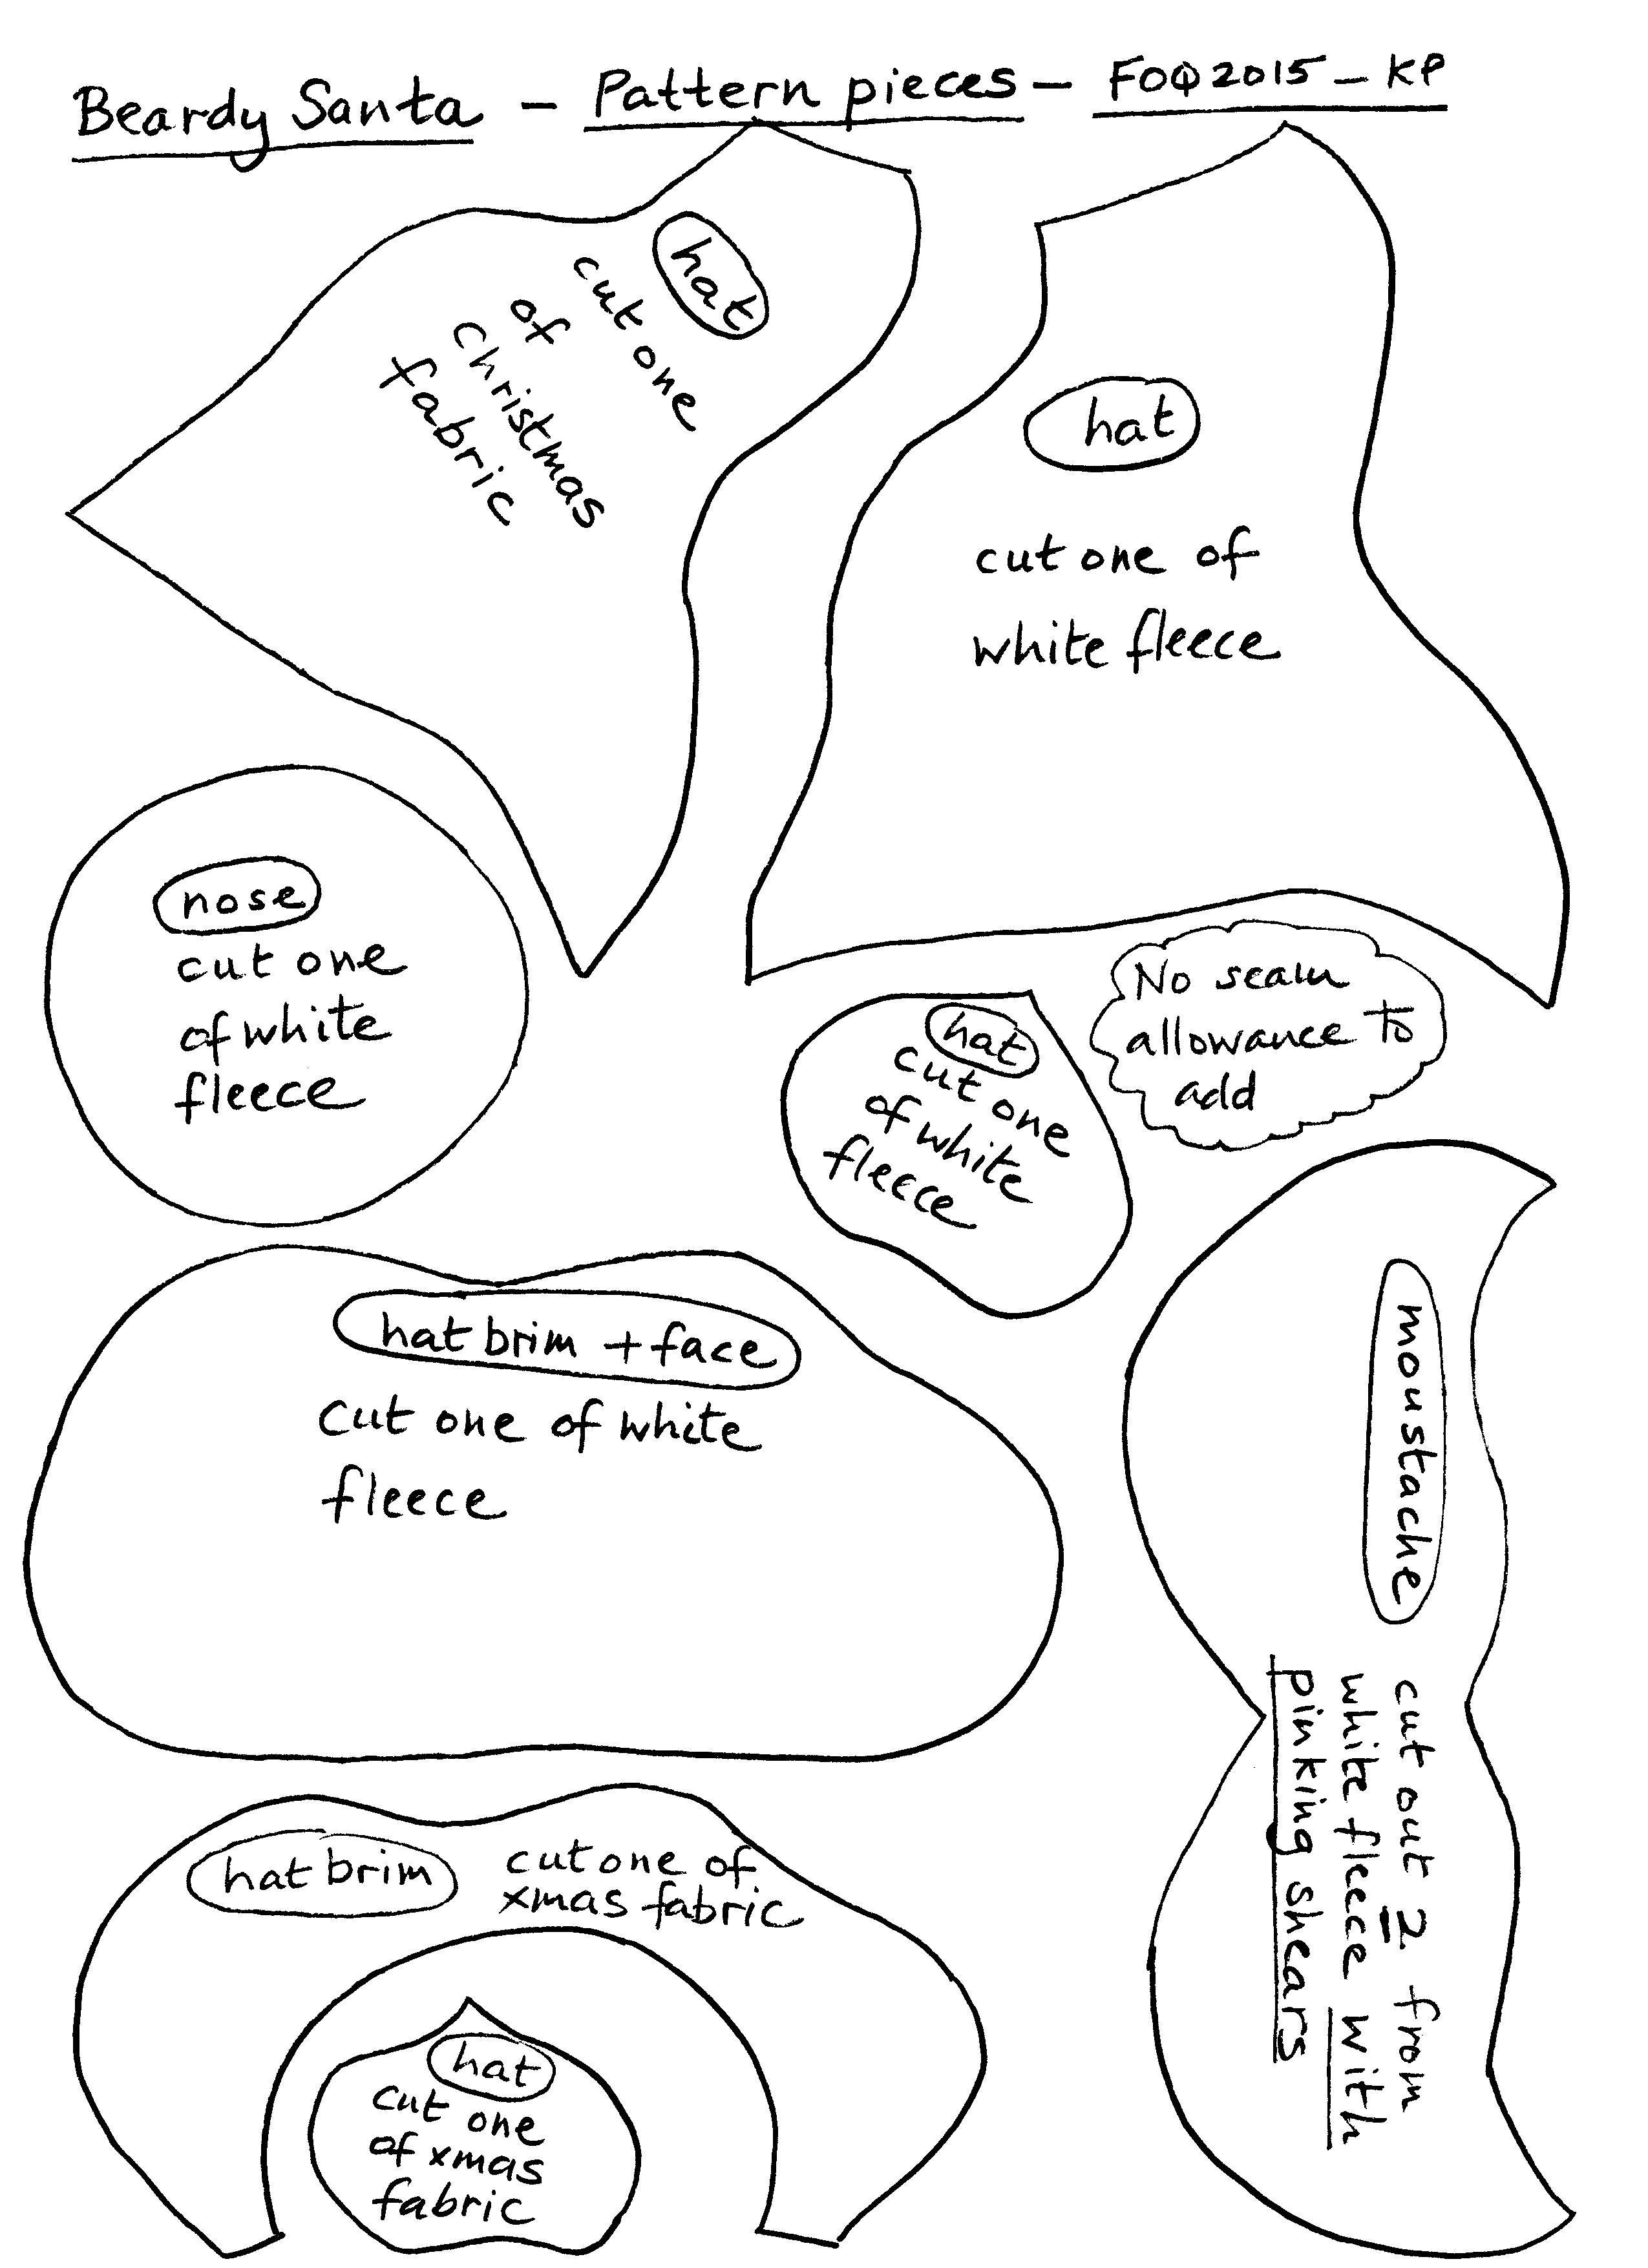 Beardy Santa - Pattern pieces - FOQ 2015 - KP
hat
cut one
of
christmas
fabric
hat
cut one of
white fleece
nose
cut one
of white
fleece
hat
cut one
of white
fleece
No seam
allowance to
add
hat brim + face
cut one of white
fleece
moustache
cut out 2 from
white fleece with
pinking shears
hat brim
cut one of
xmas fabric
hat
cut one
of xmas
fabric